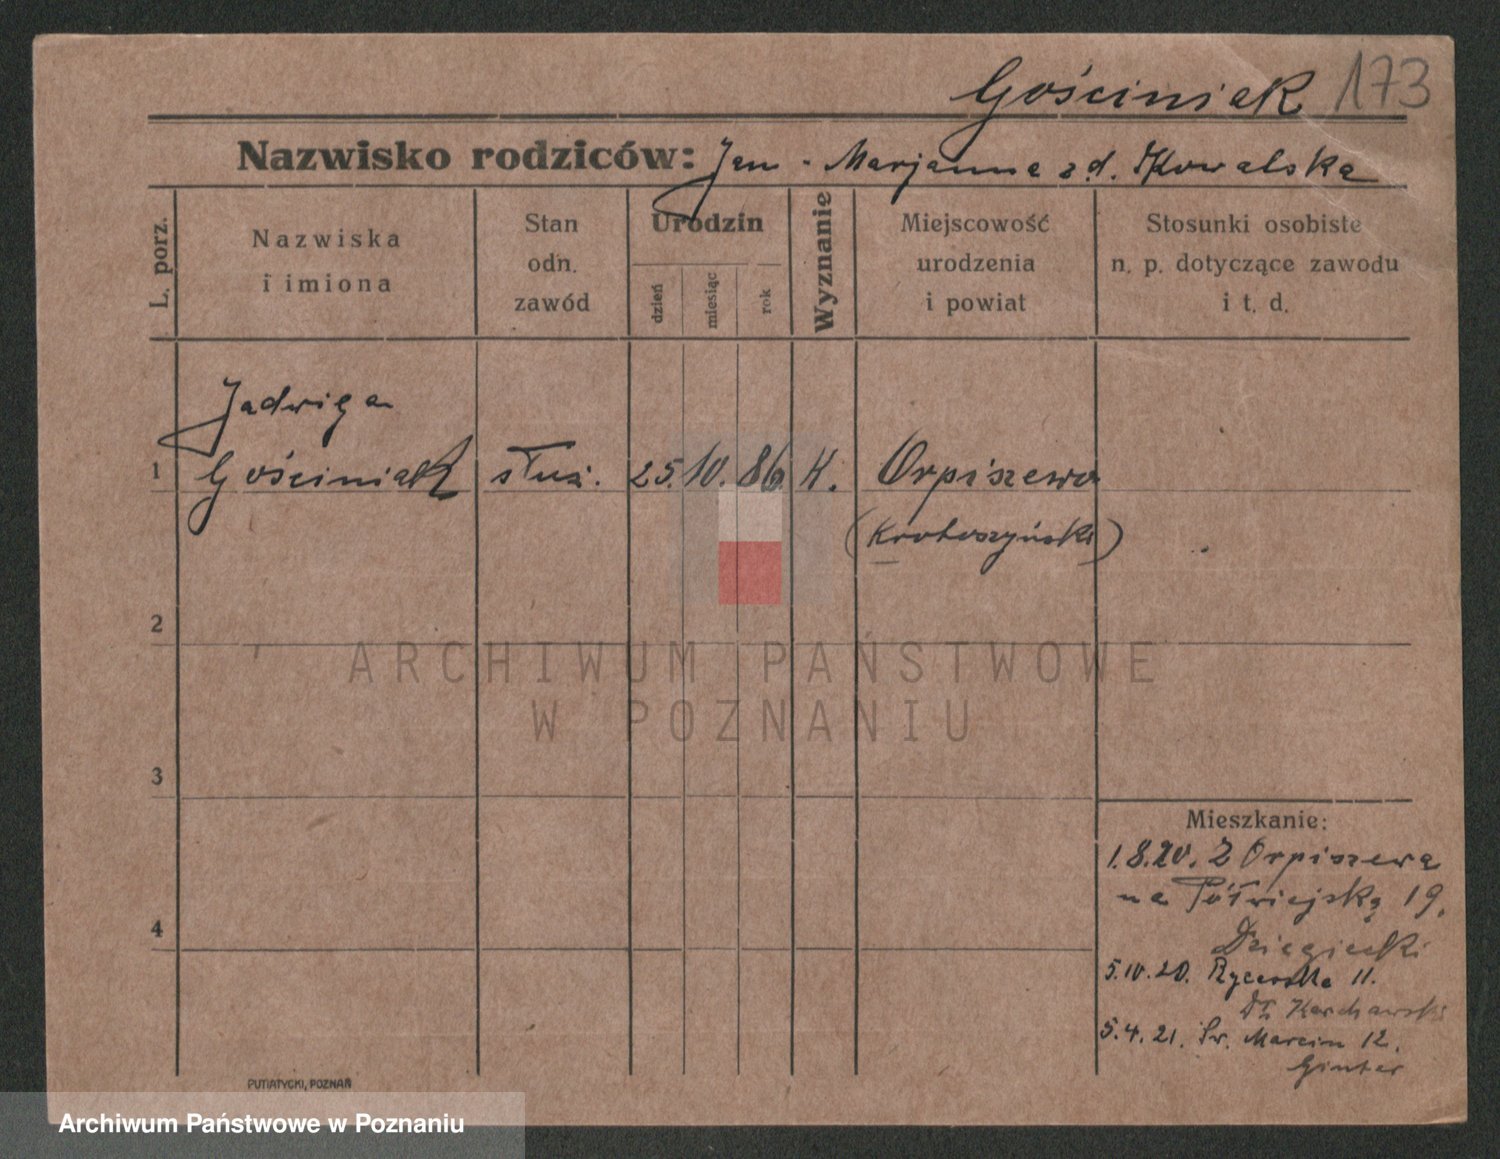 Gościniak 173
Nazwisko rodziców: Jan - Marjanna z d. Kowalska
L. porz.
Nazwiska
i imiona
Stan
odn.
zawód
Urodzin
dzień
miesiąc
rok
Wyznanie
Miejscowość
urodzenia
i powiat
Stosunki osobiste
n. p. dotyczące zawodu
i t. d.
Jadwiga
1 Gościniak służ. 25. 10. 86. K. Orpiszewo
(Krotoszyński)
2
ARCHIWUM PAŃSTWOWE
W POZNANIU
3
Mieszkanie:
1.8.20. Z Orpiszewa
na Półwiejską 19.
4
5.10.20. Rycerska 11.
5.4.21. Św. Marcin 12.
Ginter
PUTIATYCKI, POZNAŃ
Archiwum Państwowe w Poznaniu